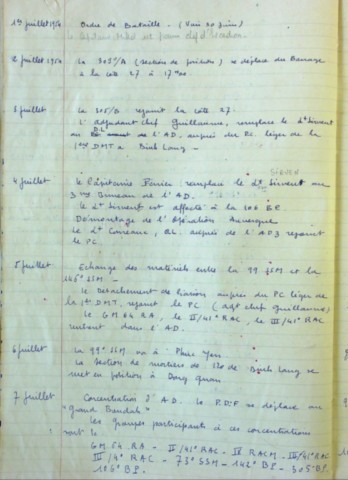 1er juillet 1954 Ordre de Bataille. (Voir 30 juin)
Le Capitaine
2 juillet 1954 La 305°/A (section de position) se déplace du Barrage
à la côte 27 à 17h00.
3 juillet La 305/B rejoint la côte 27.
L'adjudant chef Guillaume, remplace le Lt Sirvent
au D.L. de l'A.D. auprès du P.C. léger de la
1ère DMT à Binh Lang -
4 juillet Le Capitaine Perrier remplace le Lt Sirvent au
3ème Bureau de l'A.D.
Le Lt Sirvent est affecté à la 106 B.P.
Démontage de l'Opération Auvergne
Le Lt O.L. auprès de l'AD3 rejoint
le PC.
5 juillet Echange des matériels entre la 99 SSM et la
146° SSM -
Le Détachement de liaison auprès du PC léger de
la 1ère DMT, rejoint le PC (adjt chef Guillaume)
Le GM 64 RA, le II/41° RAC, le III/41° RAC
rentrent dans l'A.D.
6 juillet La 99° SSM va à Phuc Yen
La section de mortiers de 120 de Binh Lang se
met en position à Dong Quan
7 juillet Concentration d'A.D. Le P.D.F se déplace au
"Grand Bouddah"
Les groupes participants à ces concentrations
sont le
GM 64 RA - II/41° RAC - IV RACM - III/41° RAC
III/4° RAC - 73° SSM - 142° BP - 305° BP.
106° BP.